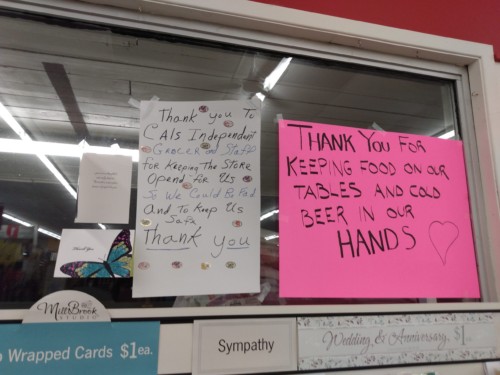 Thank you To
CAls Independent
Grocer and Staff
for Keeping The Store
Opend for Us
So We Could Be Fed
And To Keep Us
Safe
Thank you
THANK YOU FOR
KEEPING FOOD ON OUR
TABLES AND COLD
BEER IN OUR
HANDS
Thank You
MillBrook
STUDIO
Wrapped Cards $1ea.
Sympathy
Wedding & Anniversary, $1